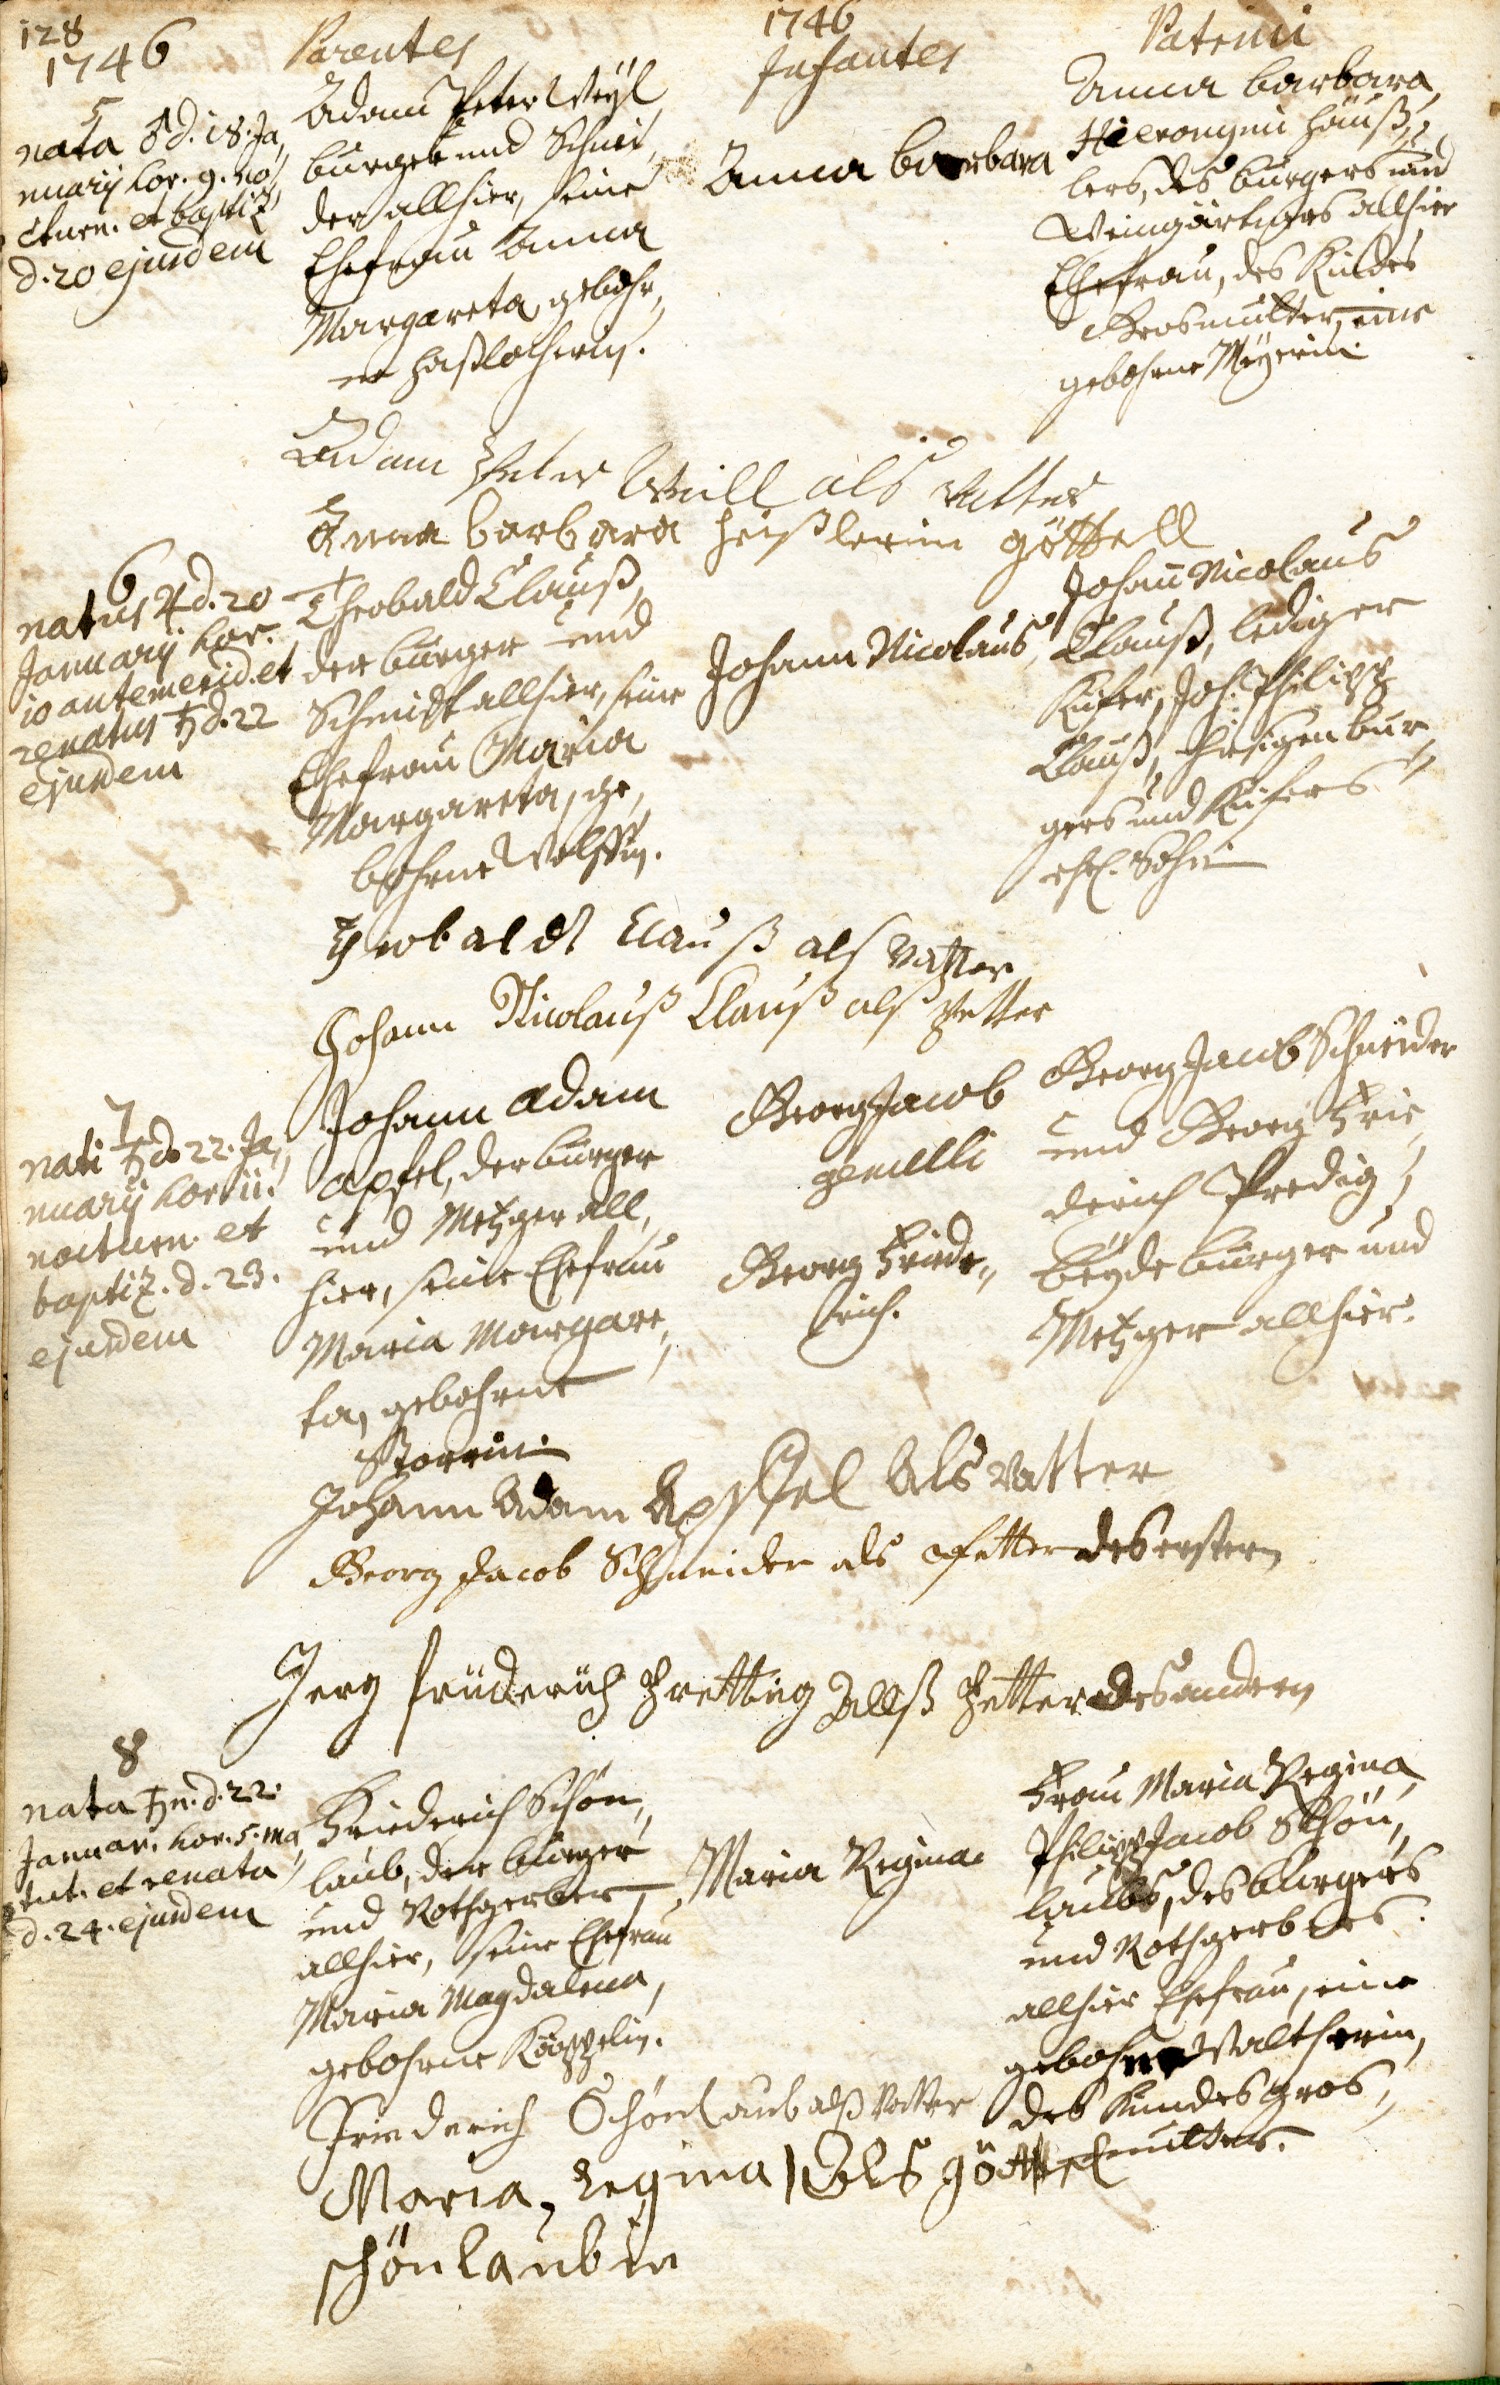 128
1746
Parentes
1746
Infantes
Patrini
5
nata ♂ d. 18. Ja,
nuarij hor. 9. no,
cturn. et baptiz.
d. 20 ejusdem
Adam Peter Weyl
burger und Schnei,
der allhier, seine
Ehefrau Anna
Margareta, gebohr,
ne Haßlocherin.
Anna barbara
Anna barbara,
Hieronymi Häuß,
lers, des burgers und
Weingärtners allhier
Ehefrau, des Kindes
Grosmutter, eine
gebohrne Meyerin.
Adam Peter Weill als Vatter
Anna barbara Heißlerin göttell
6
natus ♃ d. 20
Januarij hor.
10 antemerid. et
renatus ♄ d. 22
ejusdem
Theobald Clauß,
der burger und
Schmidt allhier, seine
Ehefrau Maria
Margareta, ge,
bohrne Wolffin.
Johann Nicolaus
Johann Nicolaus
Clauß, lediger
Küfer, Joh. Philipp
Clauß, hiesigen bur,
gers und Küfers
ehel. Sohn
Theobaldt Clauß als Vatter
Johann Nicolauß Clauß als Petter
7
nati ♄ d. 22. Ja,
nuarij hor. 11.
nocturn. et
baptiz. d. 23.
ejusdem
Johann Adam
Apfel, der burger
und Metzger all,
hier, seine Ehefrau
Maria Margare,
ta, gebohrne
Storrin.
Georg Jacob
gemelli
Georg Friede,,
rich.
Georg Jacob Schneider
und Georg Frie,
derich Predig,
beyde burger und
Metzger allhier.
Johann Adam Apffel Als Vatter
Georg Jacob Schneider als Pfetter des erstern
Jerg früderich Pretting Allß Petter des andern
8
nata ♄ n. d. 22.
Januar. hor. 5. ma,
tut. et renata
d. 24. ejusdem
Friederich Schön,
laub, der burger
und Rothgerber
allhier, seine Ehefrau
Maria Magdalena,
gebohrne Köppelin.
Maria Regina
Frau Maria Regina,
Philipp Jacob Schön,
laubs, des burgers
und Rothgerbers
allhier Ehefrau, eine
gebohrne Waltherin,
des Kindes gros,
mutter.
Friederich Schönlaub alß Vatter
Maria, Regina Als göttel
schönlaubin